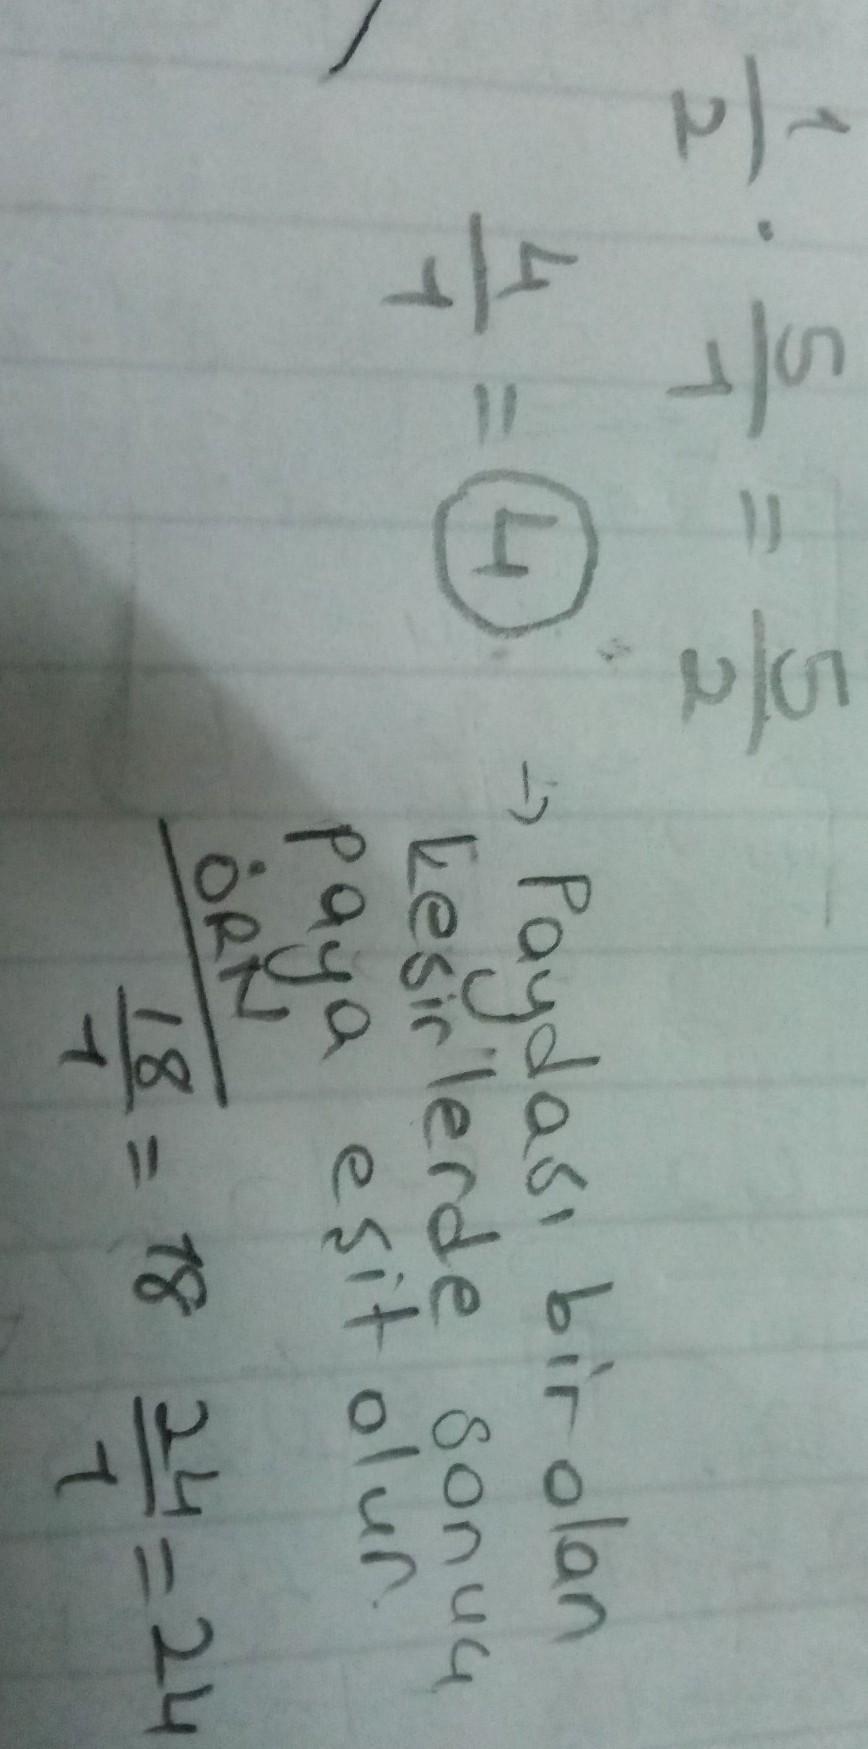 1/2 . 5/1 = 5/2
4/1 = 4
→ Paydası bir olan
kesir'lerde sonuç
paya eşit olur.
ÖRN
18/1 = 18 24/1 = 24